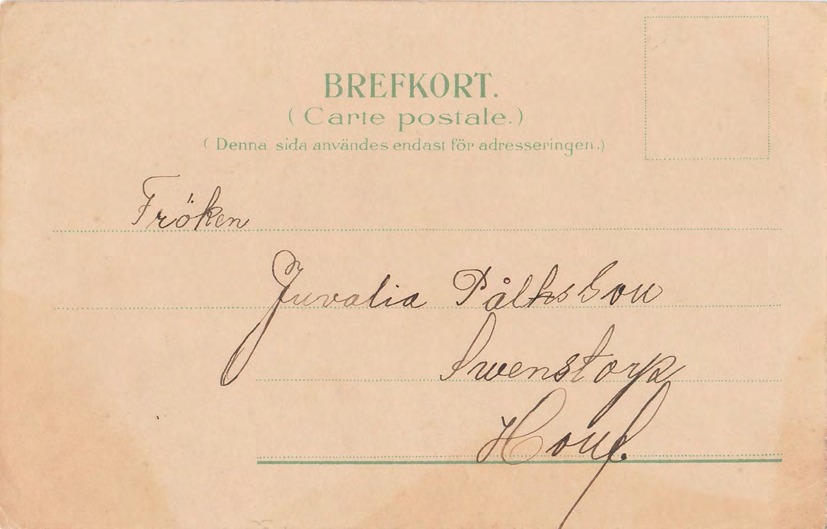 BREFKORT.
(Carte postale.)
(Denna sida användes endast för adresseringen.)
Fröken
Juvalia Pålhsson
Swenstorp